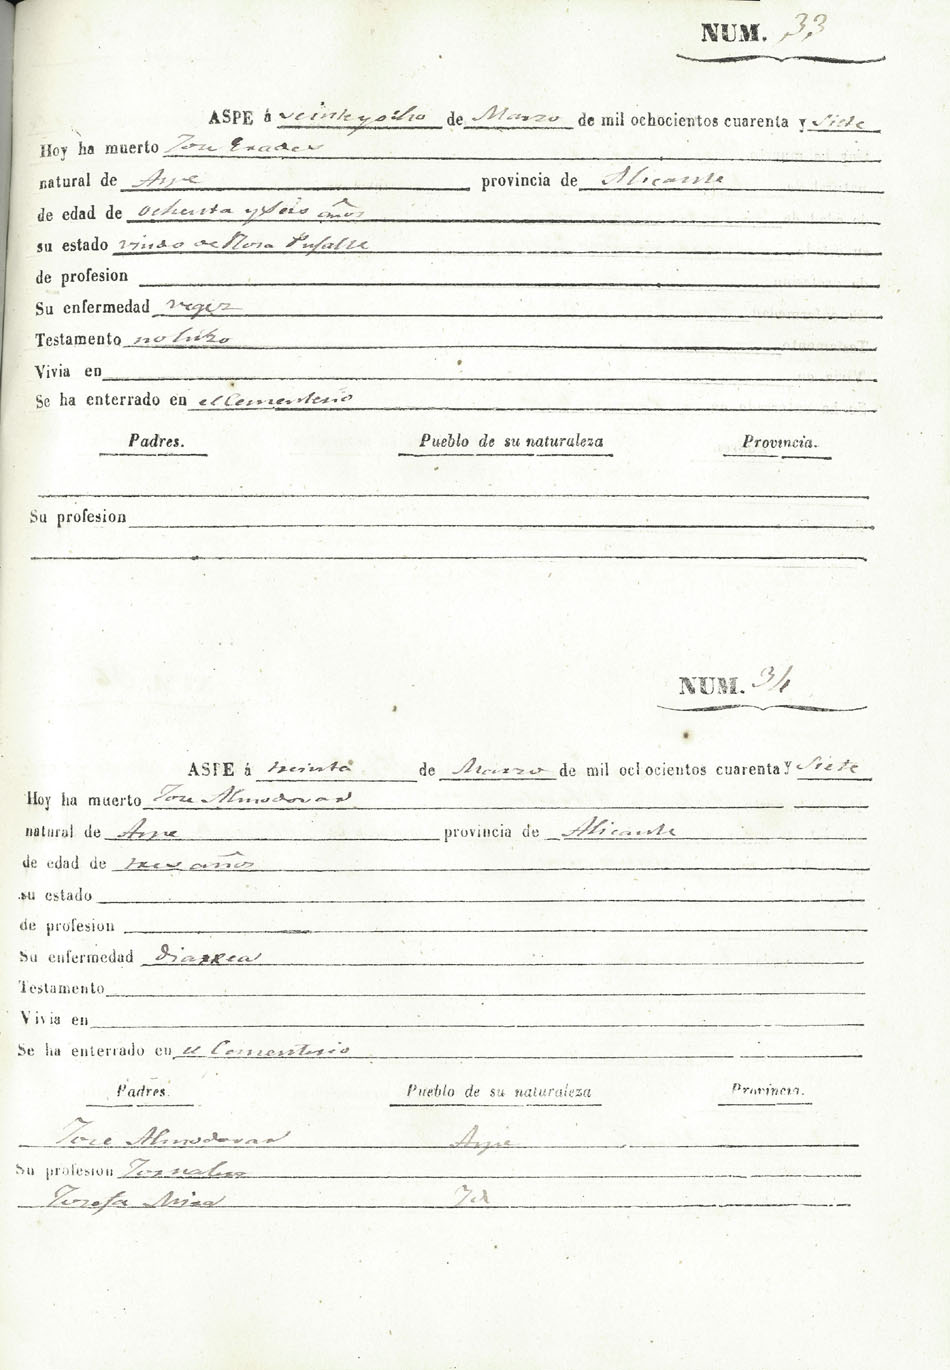 NUM. 33
ASPE á veinte y ocho de Marzo de mil ochocientos cuarenta y Siete
Hoy ha muerto Jose
natural de Aspe provincia de Alicante
de edad de ochenta y Seis años
su estado viudo de Rosa
de profesion
Su enfermedad vegez
Testamento no hizo
Vivia en
Se ha enterrado en el Cementerio
Padres. Pueblo de su naturaleza Provincia.
Su profesion
NUM. 34
ASPE á treinta de Marzo de mil ochocientos cuarenta y Siete
Hoy ha muerto Jose Almodovar
natural de Aspe provincia de Alicante
de edad de tres años
su estado
de profesion
Su enfermedad Diarrea
Testamento
Vivia en
Se ha enterrado en el Cementerio
Padres. Pueblo de su naturaleza Provincia.
Jose Almodovar Aspe
Su profesion Jornalero
Teresa Mira Id